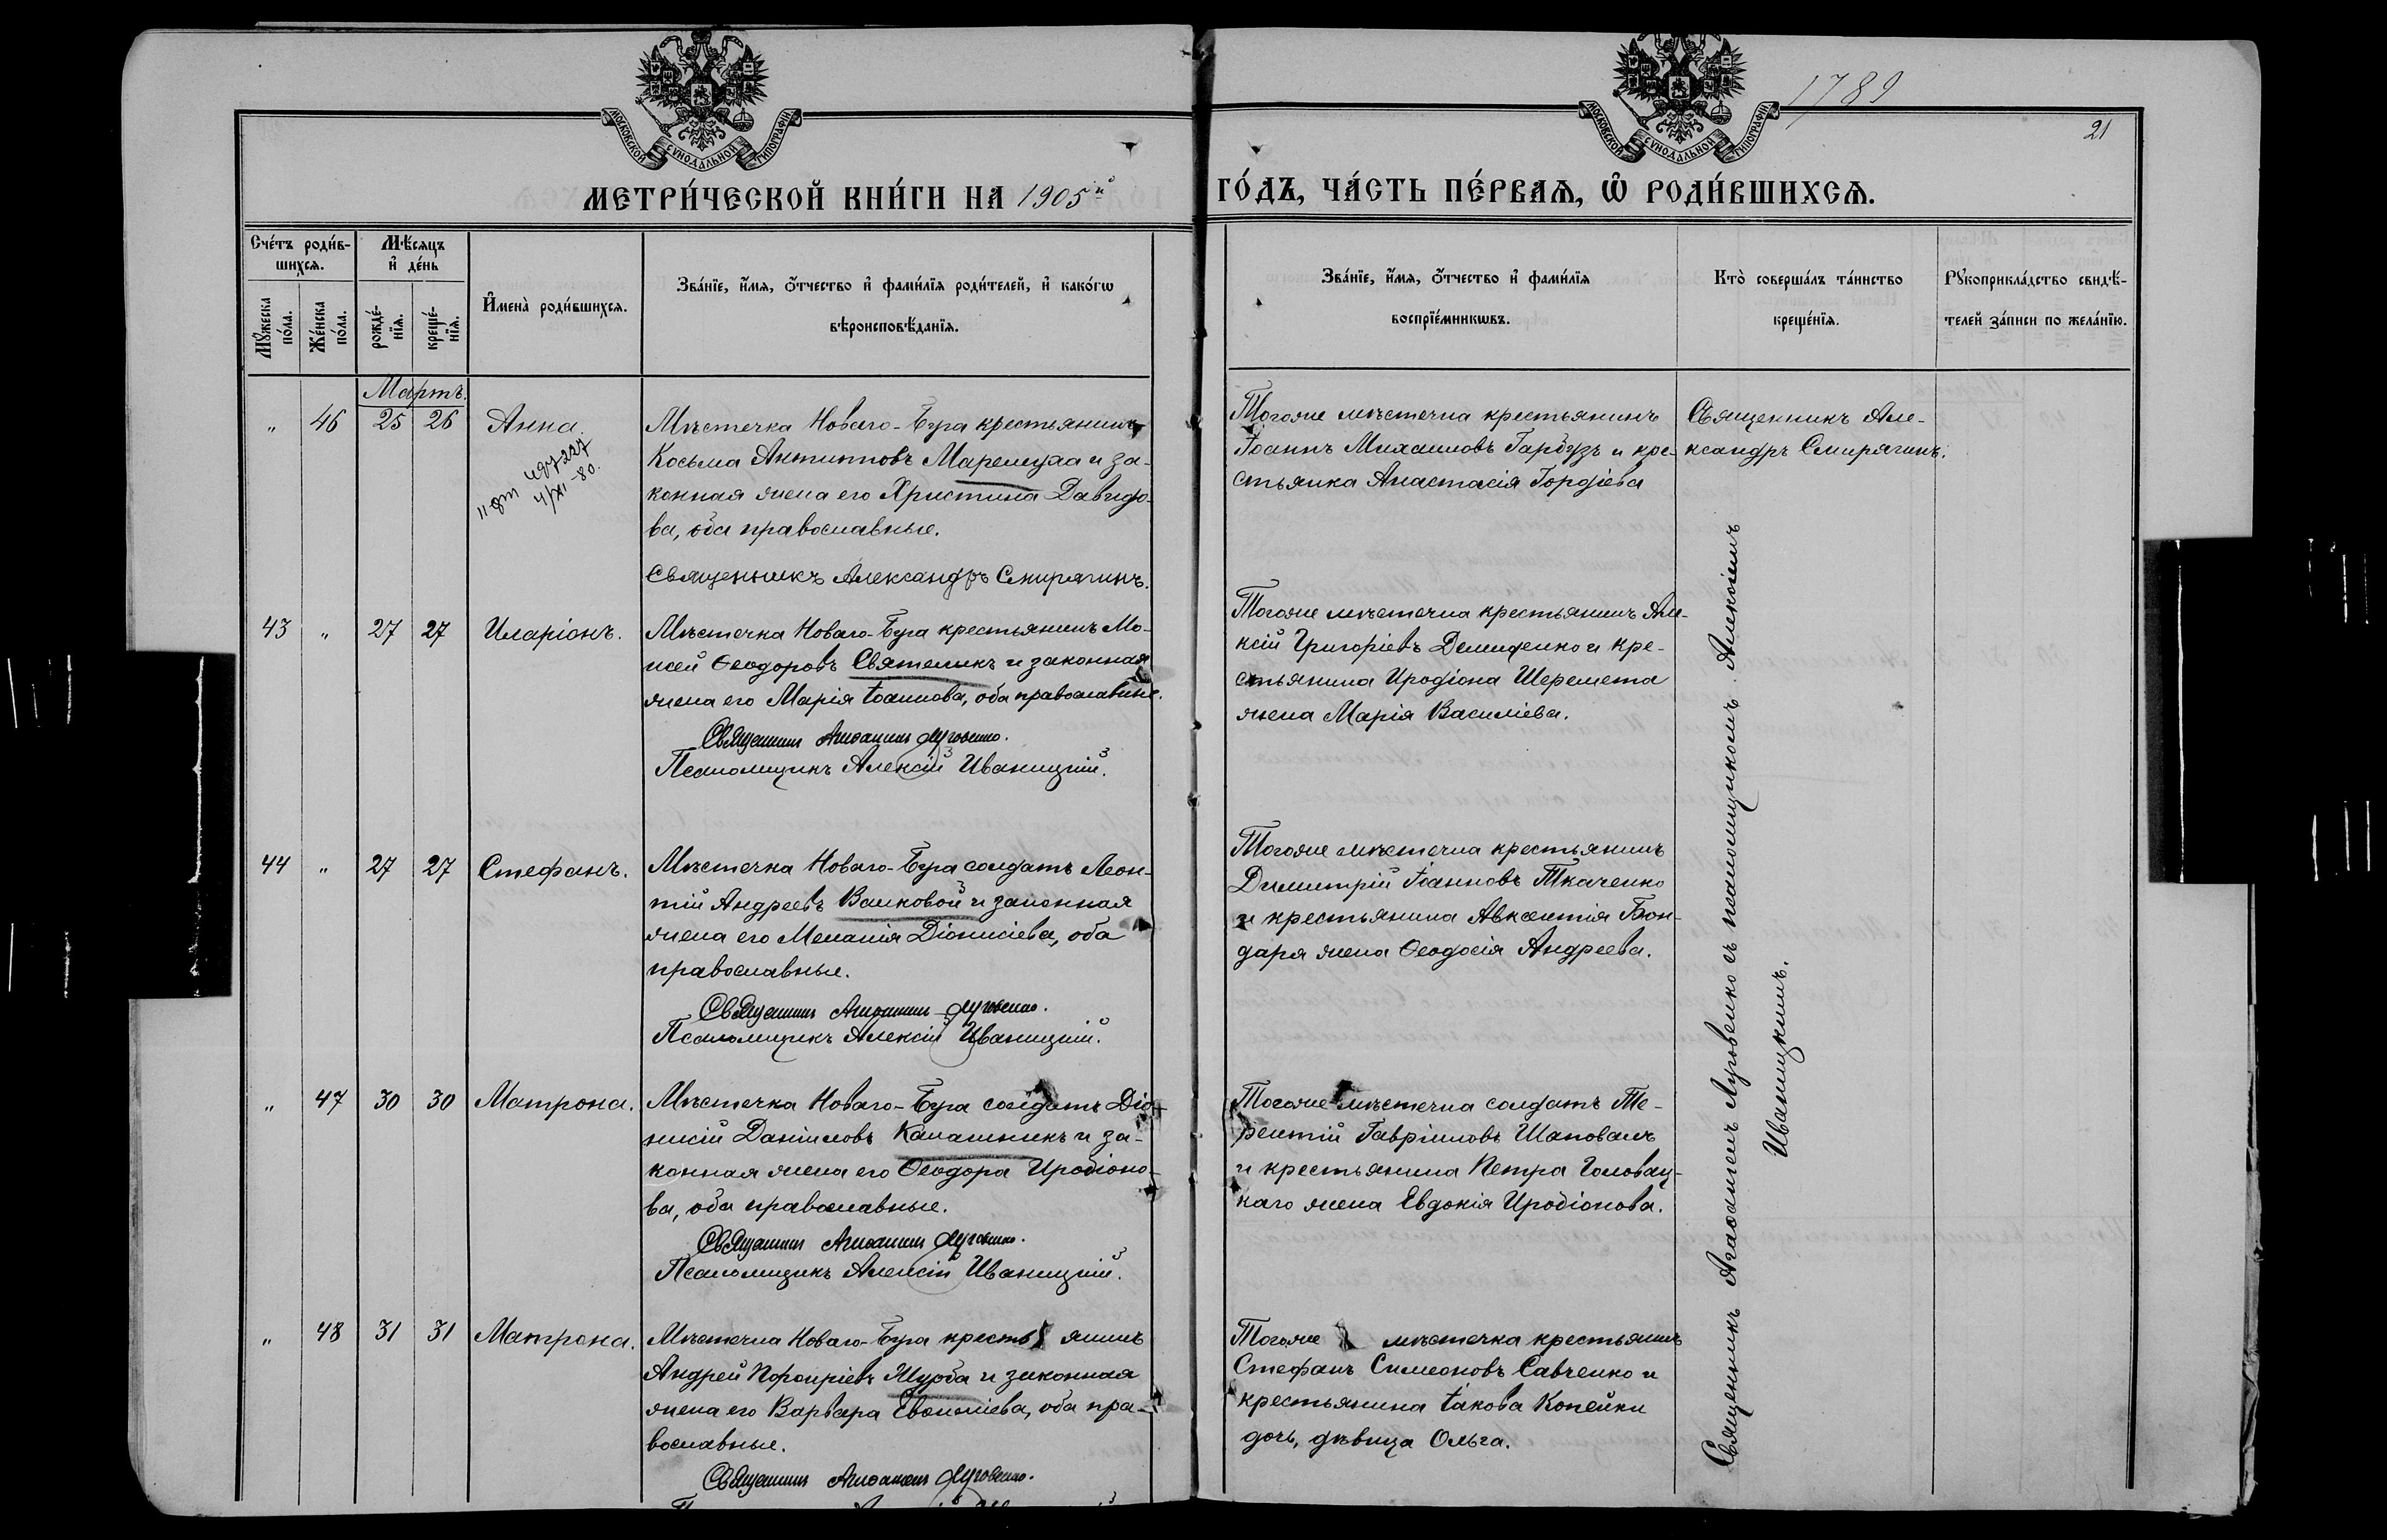 МОСКОВСКОЙ СУНОДАЛЬНОЙ ТИПОГРАФІИ
МОСКОВСКОЙ СУНОДАЛЬНОЙ ТИПОГРАФІИ
1789
21
МЕТРИ́ЧЕСКОЙ КНИ́ГИ НА 1905й
ГО́ДЪ, ЧА́СТЬ ПЕ́РВАЯ, Ѡ РОДИ́ВШИХСЯ.
Сче́тъ роди́в-
шихся.
Мѣ́сяцъ
и҆ де́нь
Мꙋ́жеска
по́ла.
Же́нска
по́ла.
рожде́-
нїя.
креще́-
нїя.
И҆мена̀ роди́вшихся.
Зва́нїе, и҆́мя, ѻ҆́тчество и҆ фами́лїя роди́телей, и҆ како́гѡ
вѣроисповѣ́данїя.
Зва́нїе, и҆́мя, ѻ҆́тчество и҆ фами́лїя
воспрїе́мникѡвъ.
Кто̀ соверша́лъ та́инство
креще́нїя.
Рꙋкоприкла́дство свидѣ́-
телей за́писи по жела́нїю.
Мартъ.
" 46 25 26 Анна.
4/XI-80.
Мѣстечка Новаго-Буга крестьянинъ
Косьма Антиповъ и за-
конная жена его Христина Давидо-
ва, оба православные.
Священникъ Александръ Смирягинъ.
Тогоже мѣстечка крестьянинъ
Іоаннъ Михаиловъ Гарбузъ и кре-
стьянка Анастасія Гордіева
Священникъ Але-
ксандръ Смирягинъ.
43 " 27 27 Иларіонъ.
Мѣстечка Новаго-Буга крестьянинъ Мо-
исей Ѳеодоровъ Святеликъ и законная
жена его Марія Іоаннова, оба православные.
Священникъ Агаѳангелъ Луговенко.
Псаломщикъ Алексій Иваницкій.
Тогоже мѣстечка крестьянинъ Але-
ксій Григоріевъ Демиденко и кре-
стьянина Иродіона Шеремета
жена Марія Василіева.
44 " 27 27 Стефанъ.
Мѣстечка Новаго-Буга солдатъ Леон-
тій Андреевъ Валковой и законная
жена его Меланія Діонисіева, оба
православные.
Священникъ Агаѳангелъ Луговенко.
Псаломщикъ Алексій Иваницкій.
Тогоже мѣстечка крестьянинъ
Димитрій Іоанновъ Ткаченко
и крестьянина Авксентія Бон-
даря жена Ѳеодосія Андреева.
" 47 30 30 Матрона.
Мѣстечка Новаго-Буга солдатъ Діо-
нисій Даніиловъ Калашникъ и за-
конная жена его Ѳеодора Иродіоно-
ва, оба православные.
Священникъ Агаѳангелъ Луговенко.
Псаломщикъ Алексій Иваницкій.
Тогоже мѣстечка солдатъ Те-
рентій Гавріиловъ Шаповалъ
и крестьянина Петра Головац-
каго жена Евдокія Иродіонова.
" 48 31 31 Матрона.
Мѣстечка Новаго-Буга крестьянинъ
Андрей Порфиріевъ и законная
жена его Варвара оба пра-
вославные.
Священникъ Агаѳангелъ Луговенко.
Тогоже мѣстечка крестьянинъ
Стефанъ Симеоновъ Савченко и
крестьянина Іакова Копейки
дочь, дѣвица Ольга.
Священникъ Агаѳангелъ Луговенко съ псаломщикомъ Алексіемъ
Иваницкимъ.